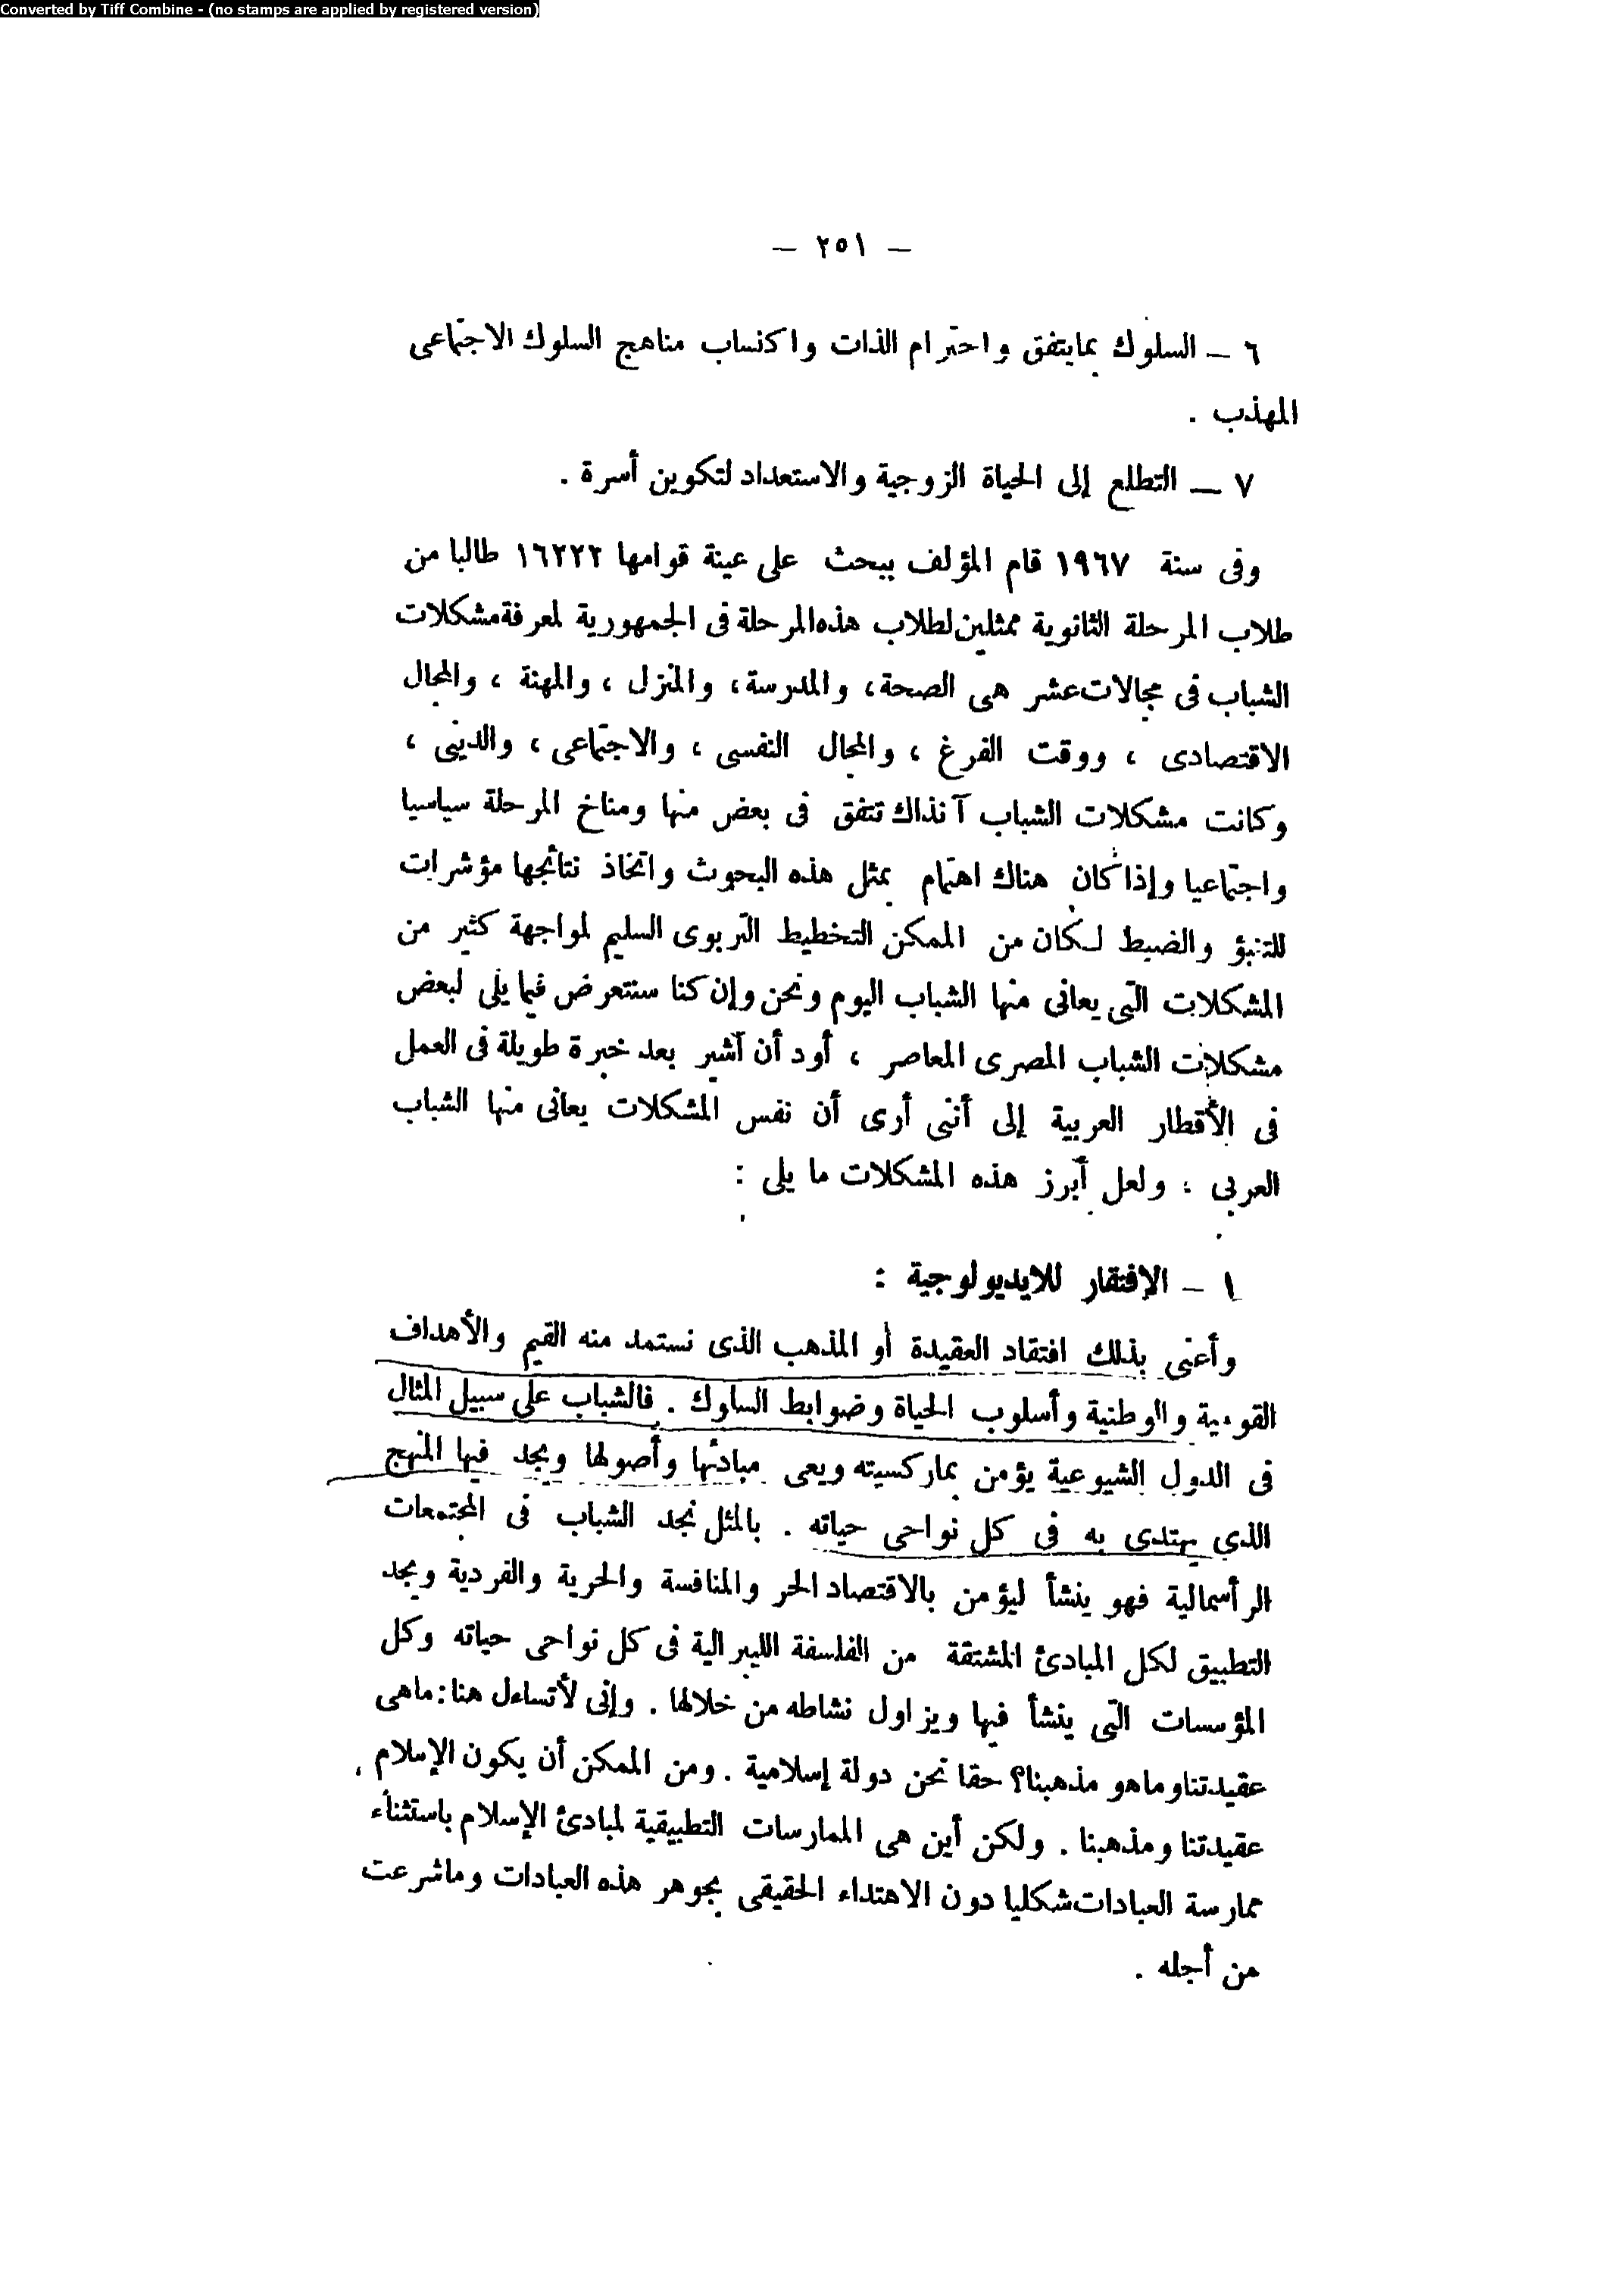 Converted by Tiff Combine - (no stamps are applied by registered version)
— ٢٥١ —
٦ — السلوك بمايتفق واحترام الذات واكتساب مناهج السلوك الاجتماعى
المهذب .
٧ — التطلع إلى الحياة الزوجية والاستعداد لتكوين أسرة .
وفى سنة ١٩٦٧ قام المؤلف ببحث على عينة قوامها ١٦٢٢٢ طالبا من
طلاب المرحلة الثانوية ممثلين لطلاب هذه المرحلة فى الجمهورية لمعرفة مشكلات
الشباب فى مجالات عشر هى الصحة ، والمدرسة ، والمنزل ، والمهنة ، والمجال
الاقتصادى ، ووقت الفرغ ، والمجال النفسى ، والاجتماعى ، والدينى ،
وكانت مشكلات الشباب آنذاك تتفق فى بعض منها ومناخ المرحلة سياسيا
واجتماعيا وإذا كان هناك اهتمام بمثل هذه البحوث واتخاذ نتائجها مؤشرات
للتنبؤ والضبط لكان من الممكن التخطيط التربوى السليم لمواجهة كثير من
المشكلات التى يعانى منها الشباب اليوم ونحن وإن كنا سنتعرض فيما يلى لبعض
مشكلات الشباب المصرى المعاصر ، أود أن أشير بعد خبرة طويلة فى العمل
فى الأقطار العربية إلى أننى أرى أن نفس المشكلات يعانى منها الشباب
العربى ، ولعل أبرز هذه المشكلات ما يلى :
١ — الإفتقار للايديولوجية :
وأعنى بذلك افتقاد العقيدة أو المذهب الذى نستمد منه القيم والأهداف
القومية والوطنية وأسلوب الحياة وضوابط السلوك . فالشباب على سبيل المثال
فى الدول الشيوعية يؤمن بماركسيته ويعى مبادئها وأصولها ويجد فيها المنهج
الذى يهتدى به فى كل نواحى حياته . بالمثل نجد الشباب فى المجتمعات
الرأسمالية فهو ينشأ ليؤمن بالاقتصاد الحر والمنافسة والحرية والفردية ويجد
التطبيق لكل المبادئ المشتقة من الفلسفة الليبرالية فى كل نواحى حياته وكل
المؤسسات التى ينشأ فيها ويزاول نشاطه من خلالها . وإنى لأتساءل هنا : ماهى
عقيدتنا وماهو مذهبنا؟ حقا نحن دولة إسلامية . ومن الممكن أن يكون الإسلام ،
عقيدتنا ومذهبنا . ولكن أين هى الممارسات التطبيقية لمبادئ الإسلام باستثناء
ممارسة العبادات شكليا دون الاهتداء الحقيقى بجوهر هذه العبادات وماشرعت
من أجله .